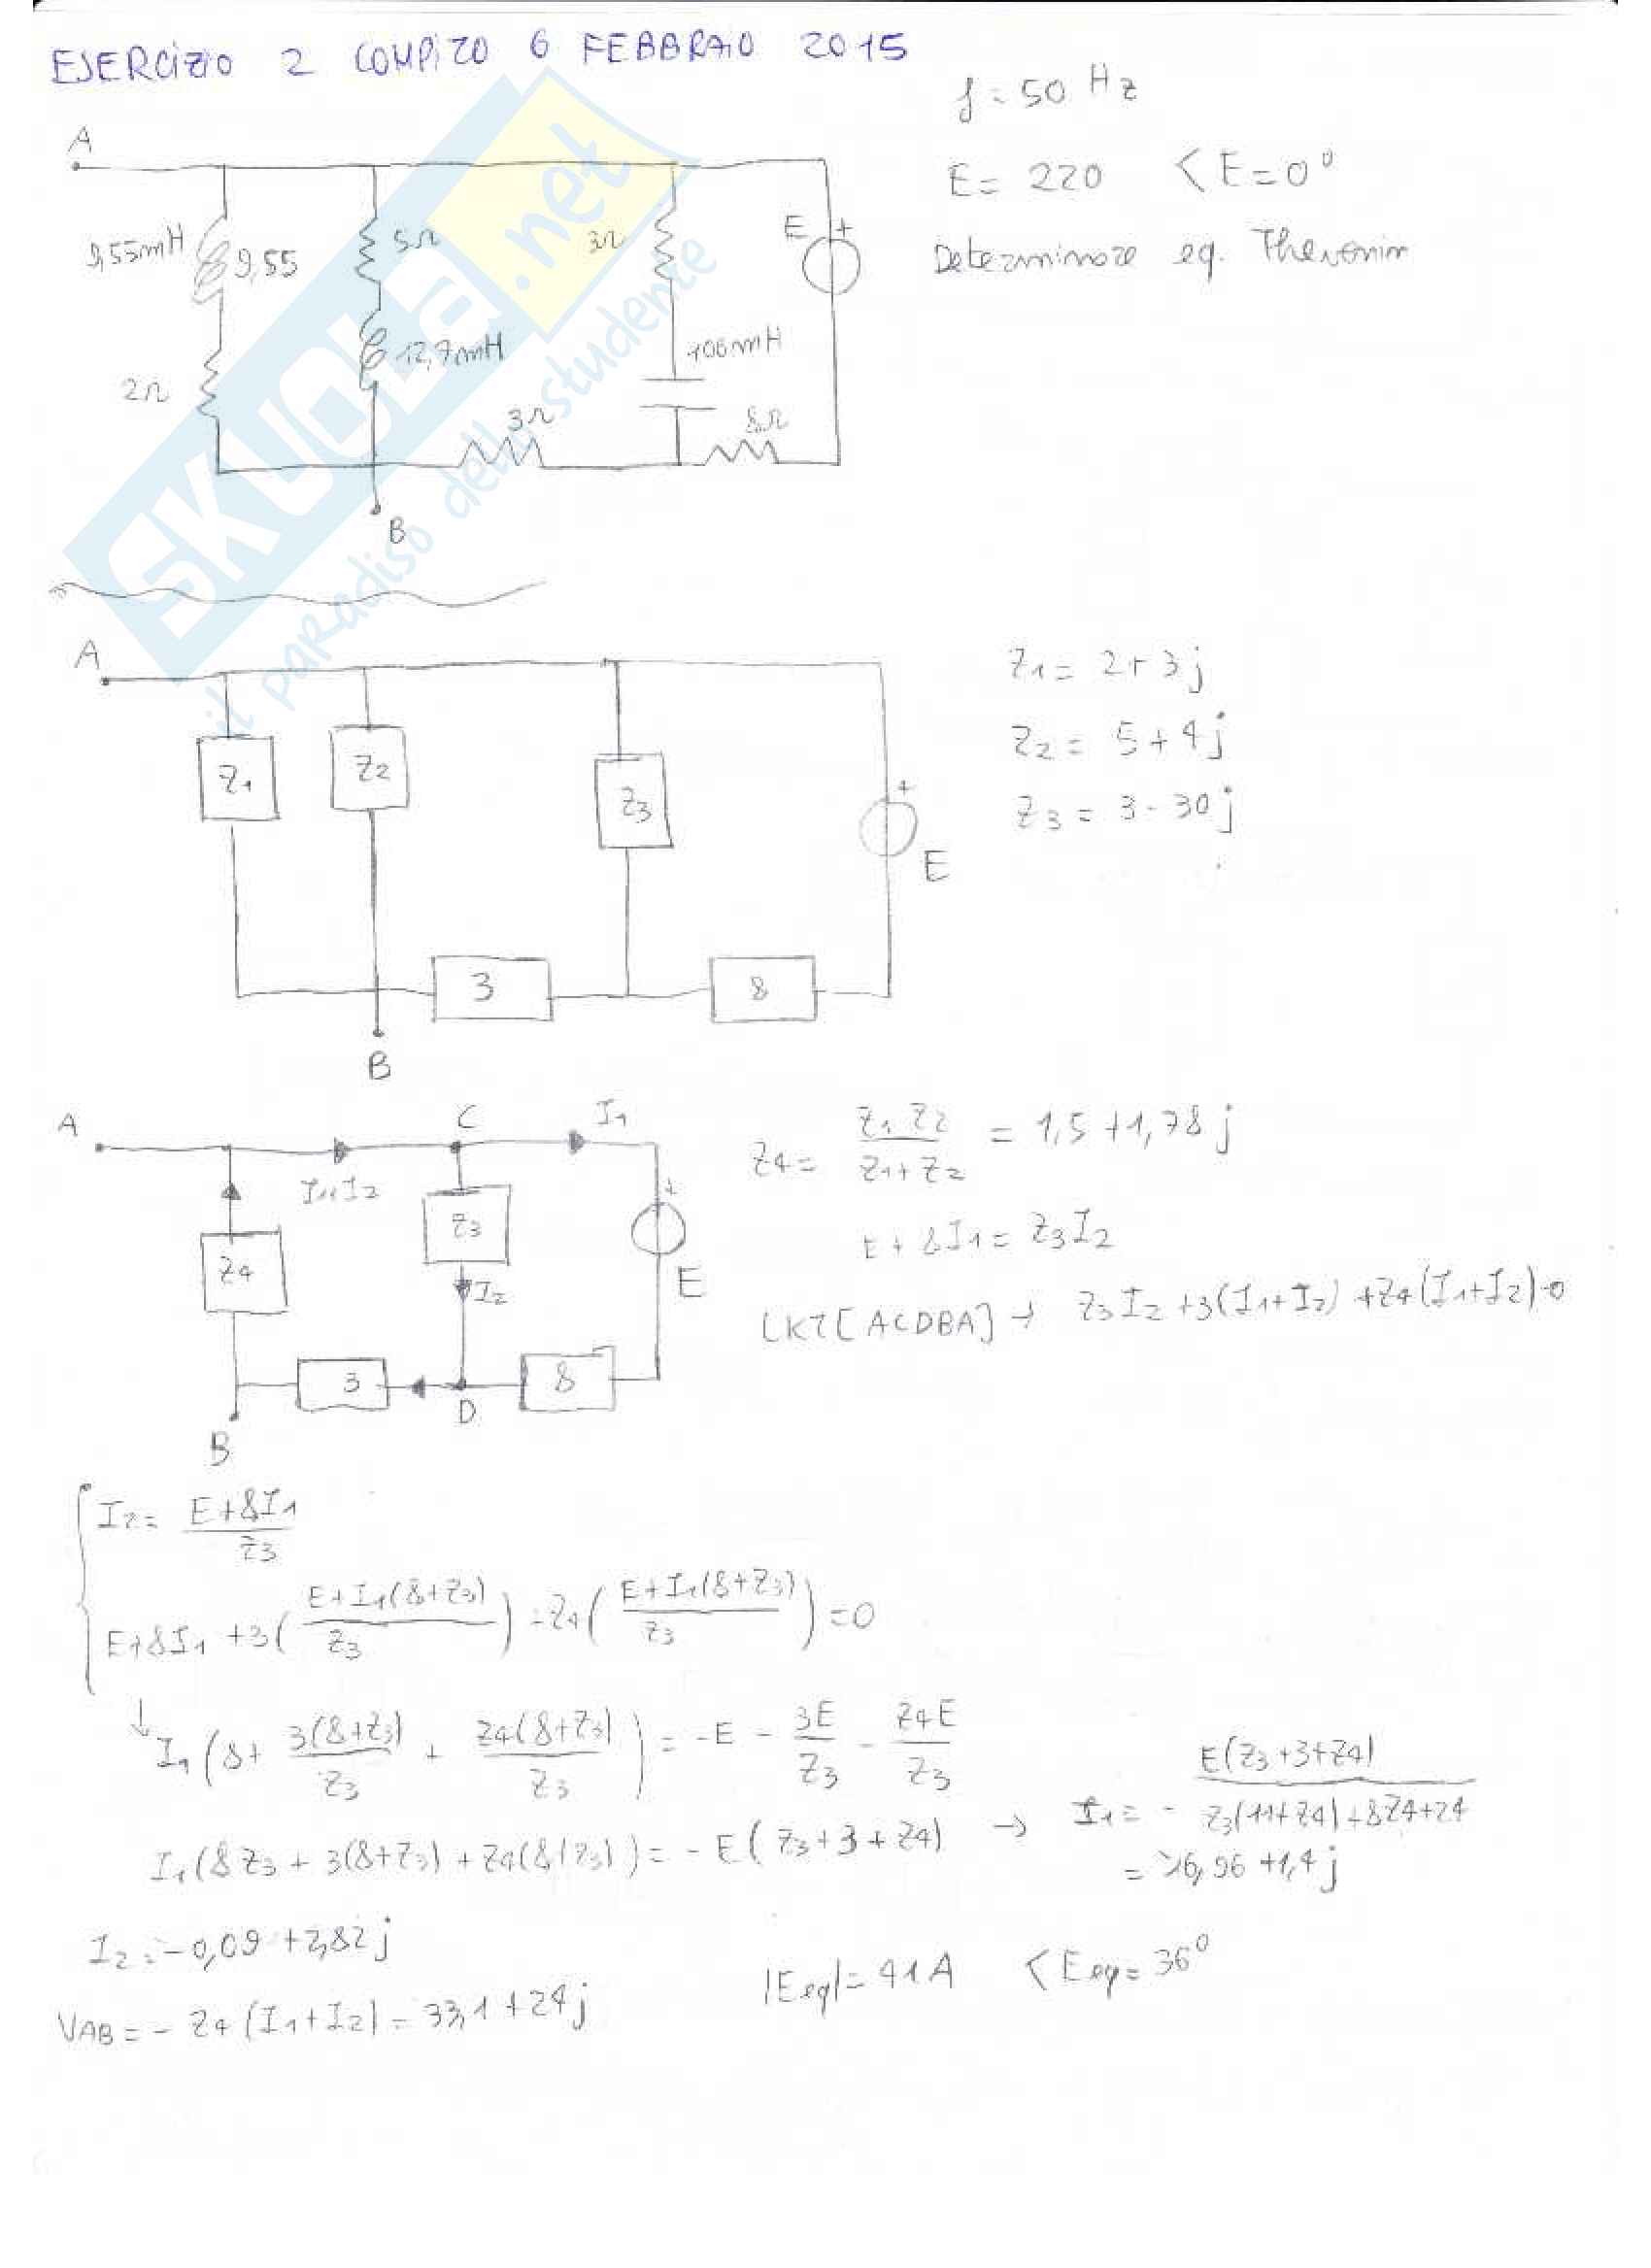 ESERCIZIO 2 COMPITO 6 FEBBRAIO 2015
f = 50 Hz
E = 220 <E=0°
Determinare eq. Thevenin
A
9,55mH
9,55
5Ω
3Ω
E
+
12,7mH
106mH
2Ω
3Ω
8Ω
B
SKUOLA.net
il paradiso dello studente
A
Z1
Z2
Z3
+
E
3
8
B
Z1 = 2+3j
Z2 = 5+4j
Z3 = 3-30j
A
C
I1
I1+I2
Z3
+
Z4
I2
E
3
D
8
B
Z4 = Z1 Z2 / Z1+Z2 = 1,5+1,78j
E+8I1 = Z3I2
LKT[ACDBA] → Z3I2+3(I1+I2)+Z4(I1+I2)=0
I2 = E+8I1 / Z3
E+8I1+3(E+I1(8+Z3) / Z3)-Z4(E+I1(8+Z3) / Z3)=0
↓ I1(8+ 3(8+Z3) / Z3 + Z4(8+Z3) / Z3) = -E - 3E / Z3 - Z4E / Z3
I1(8Z3+3(8+Z3)+Z4(8+Z3)) = -E(Z3+3+Z4) → I1 = - E(Z3+3+Z4) / Z3(11+Z4)+8Z4+24
6,96+1,4j
I2 = -0,09+2,82j
VAB = -Z4(I1+I2) = 33,1+24j
|Eeq| = 41A <Eeq = 36°